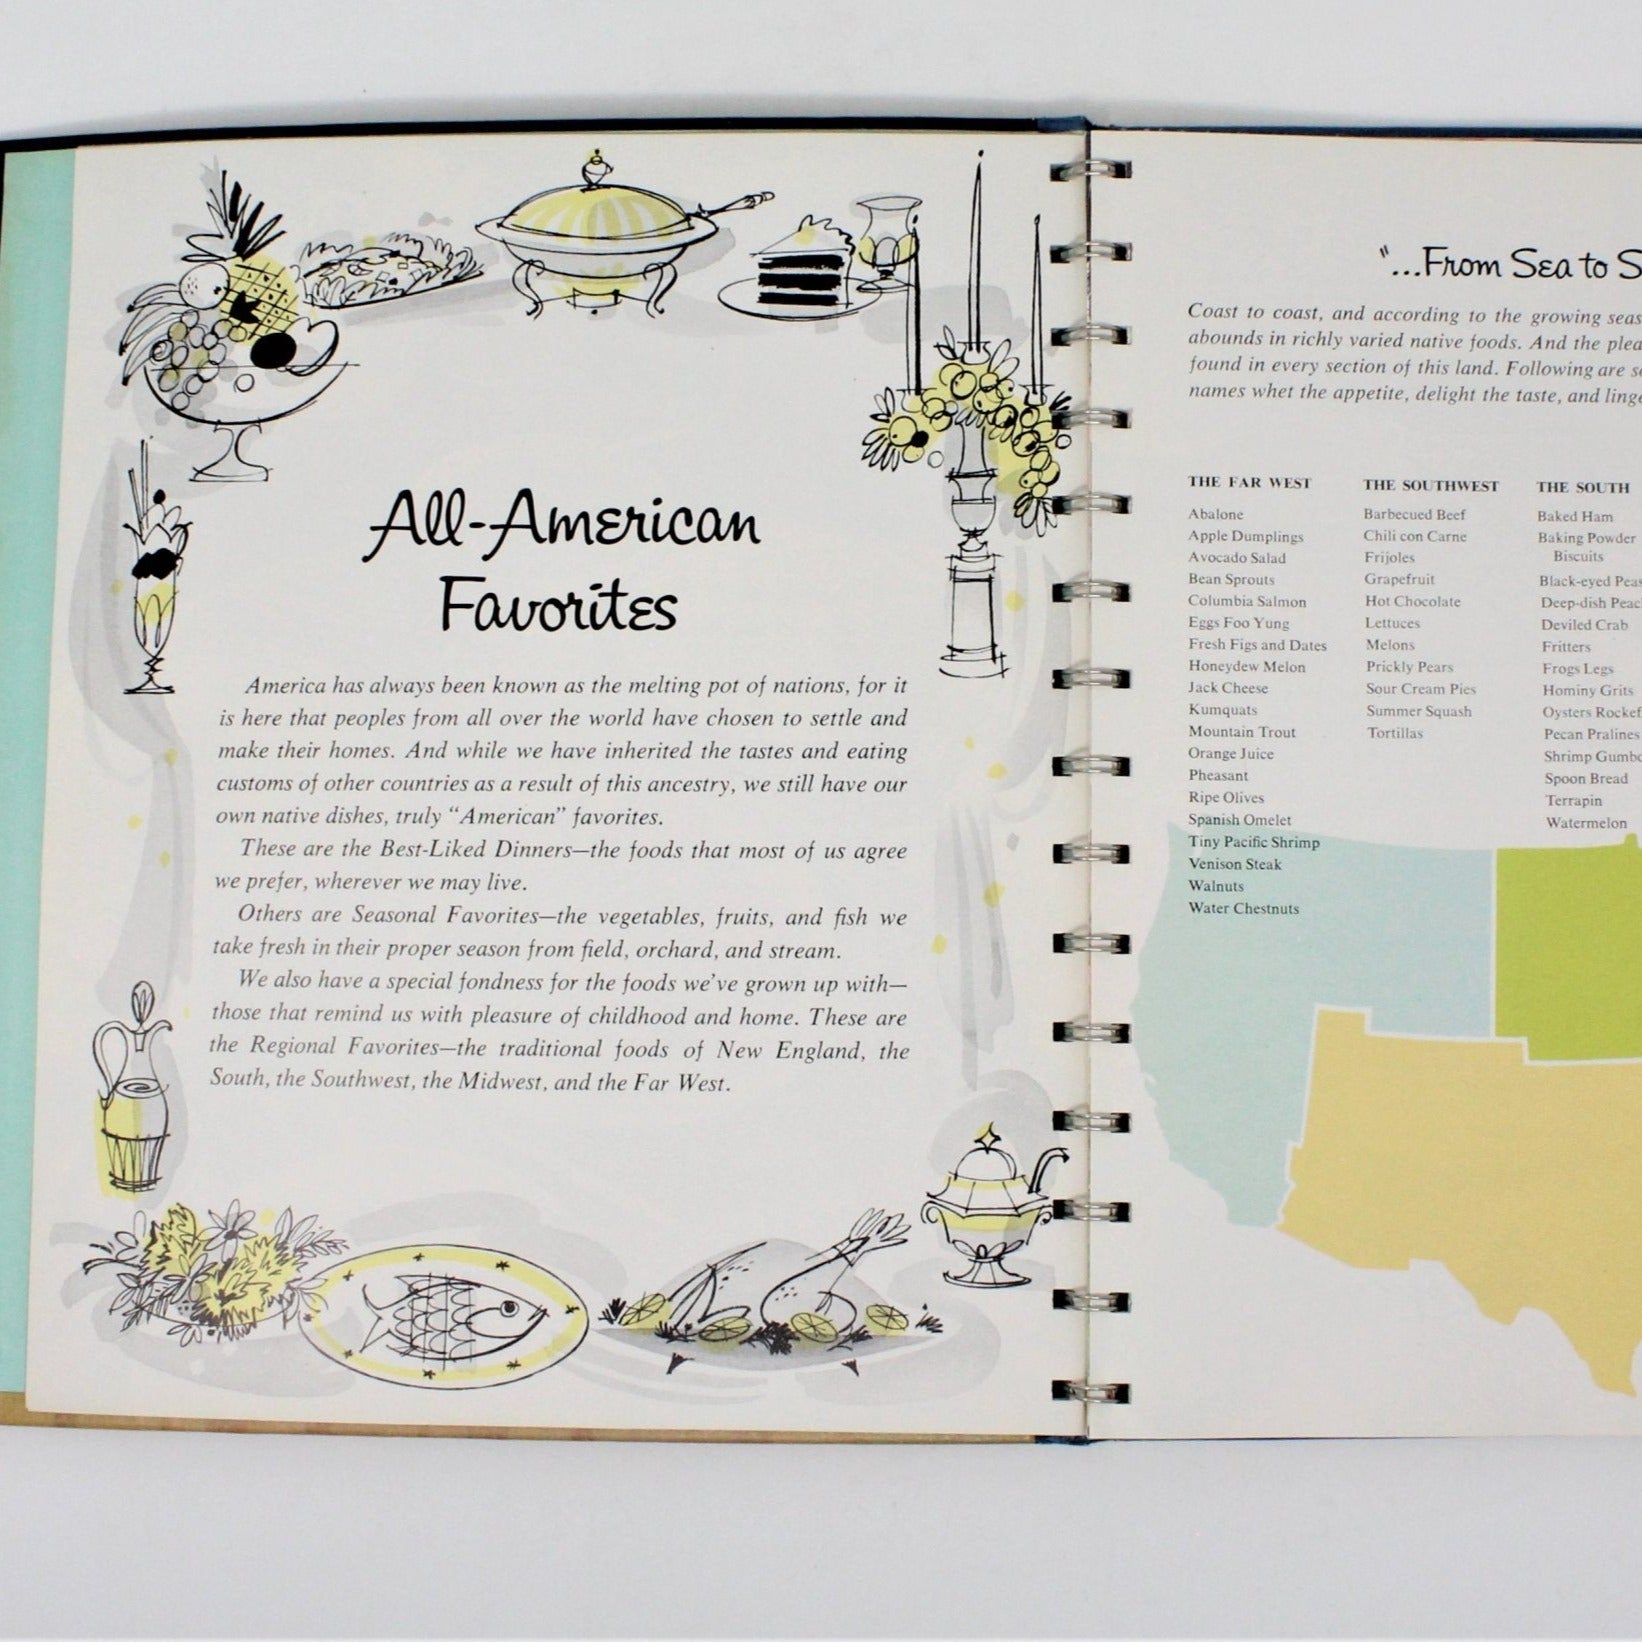 All-American
Favorites
America has always been known as the melting pot of nations, for it
is here that peoples from all over the world have chosen to settle and
make their homes. And while we have inherited the tastes and eating
customs of other countries as a result of this ancestry, we still have our
own native dishes, truly “American” favorites.
These are the Best-Liked Dinners—the foods that most of us agree
we prefer, wherever we may live.
Others are Seasonal Favorites—the vegetables, fruits, and fish we
take fresh in their proper season from field, orchard, and stream.
We also have a special fondness for the foods we’ve grown up with—
those that remind us with pleasure of childhood and home. These are
the Regional Favorites—the traditional foods of New England, the
South, the Southwest, the Midwest, and the Far West.
"...From Sea to S
Coast to coast, and according to the growing seas
abounds in richly varied native foods. And the plea
found in every section of this land. Following are s
names whet the appetite, delight the taste, and linge
THE FAR WEST
Abalone
Apple Dumplings
Avocado Salad
Bean Sprouts
Columbia Salmon
Eggs Foo Yung
Fresh Figs and Dates
Honeydew Melon
Jack Cheese
Kumquats
Mountain Trout
Orange Juice
Pheasant
Ripe Olives
Spanish Omelet
Tiny Pacific Shrimp
Venison Steak
Walnuts
Water Chestnuts
THE SOUTHWEST
Barbecued Beef
Chili con Carne
Frijoles
Grapefruit
Hot Chocolate
Lettuces
Melons
Prickly Pears
Sour Cream Pies
Summer Squash
Tortillas
THE SOUTH
Baked Ham
Baking Powder
Biscuits
Black-eyed Peas
Deep-dish Peac
Deviled Crab
Fritters
Frogs Legs
Hominy Grits
Oysters Rockef
Pecan Pralines
Shrimp Gumbo
Spoon Bread
Terrapin
Watermelon